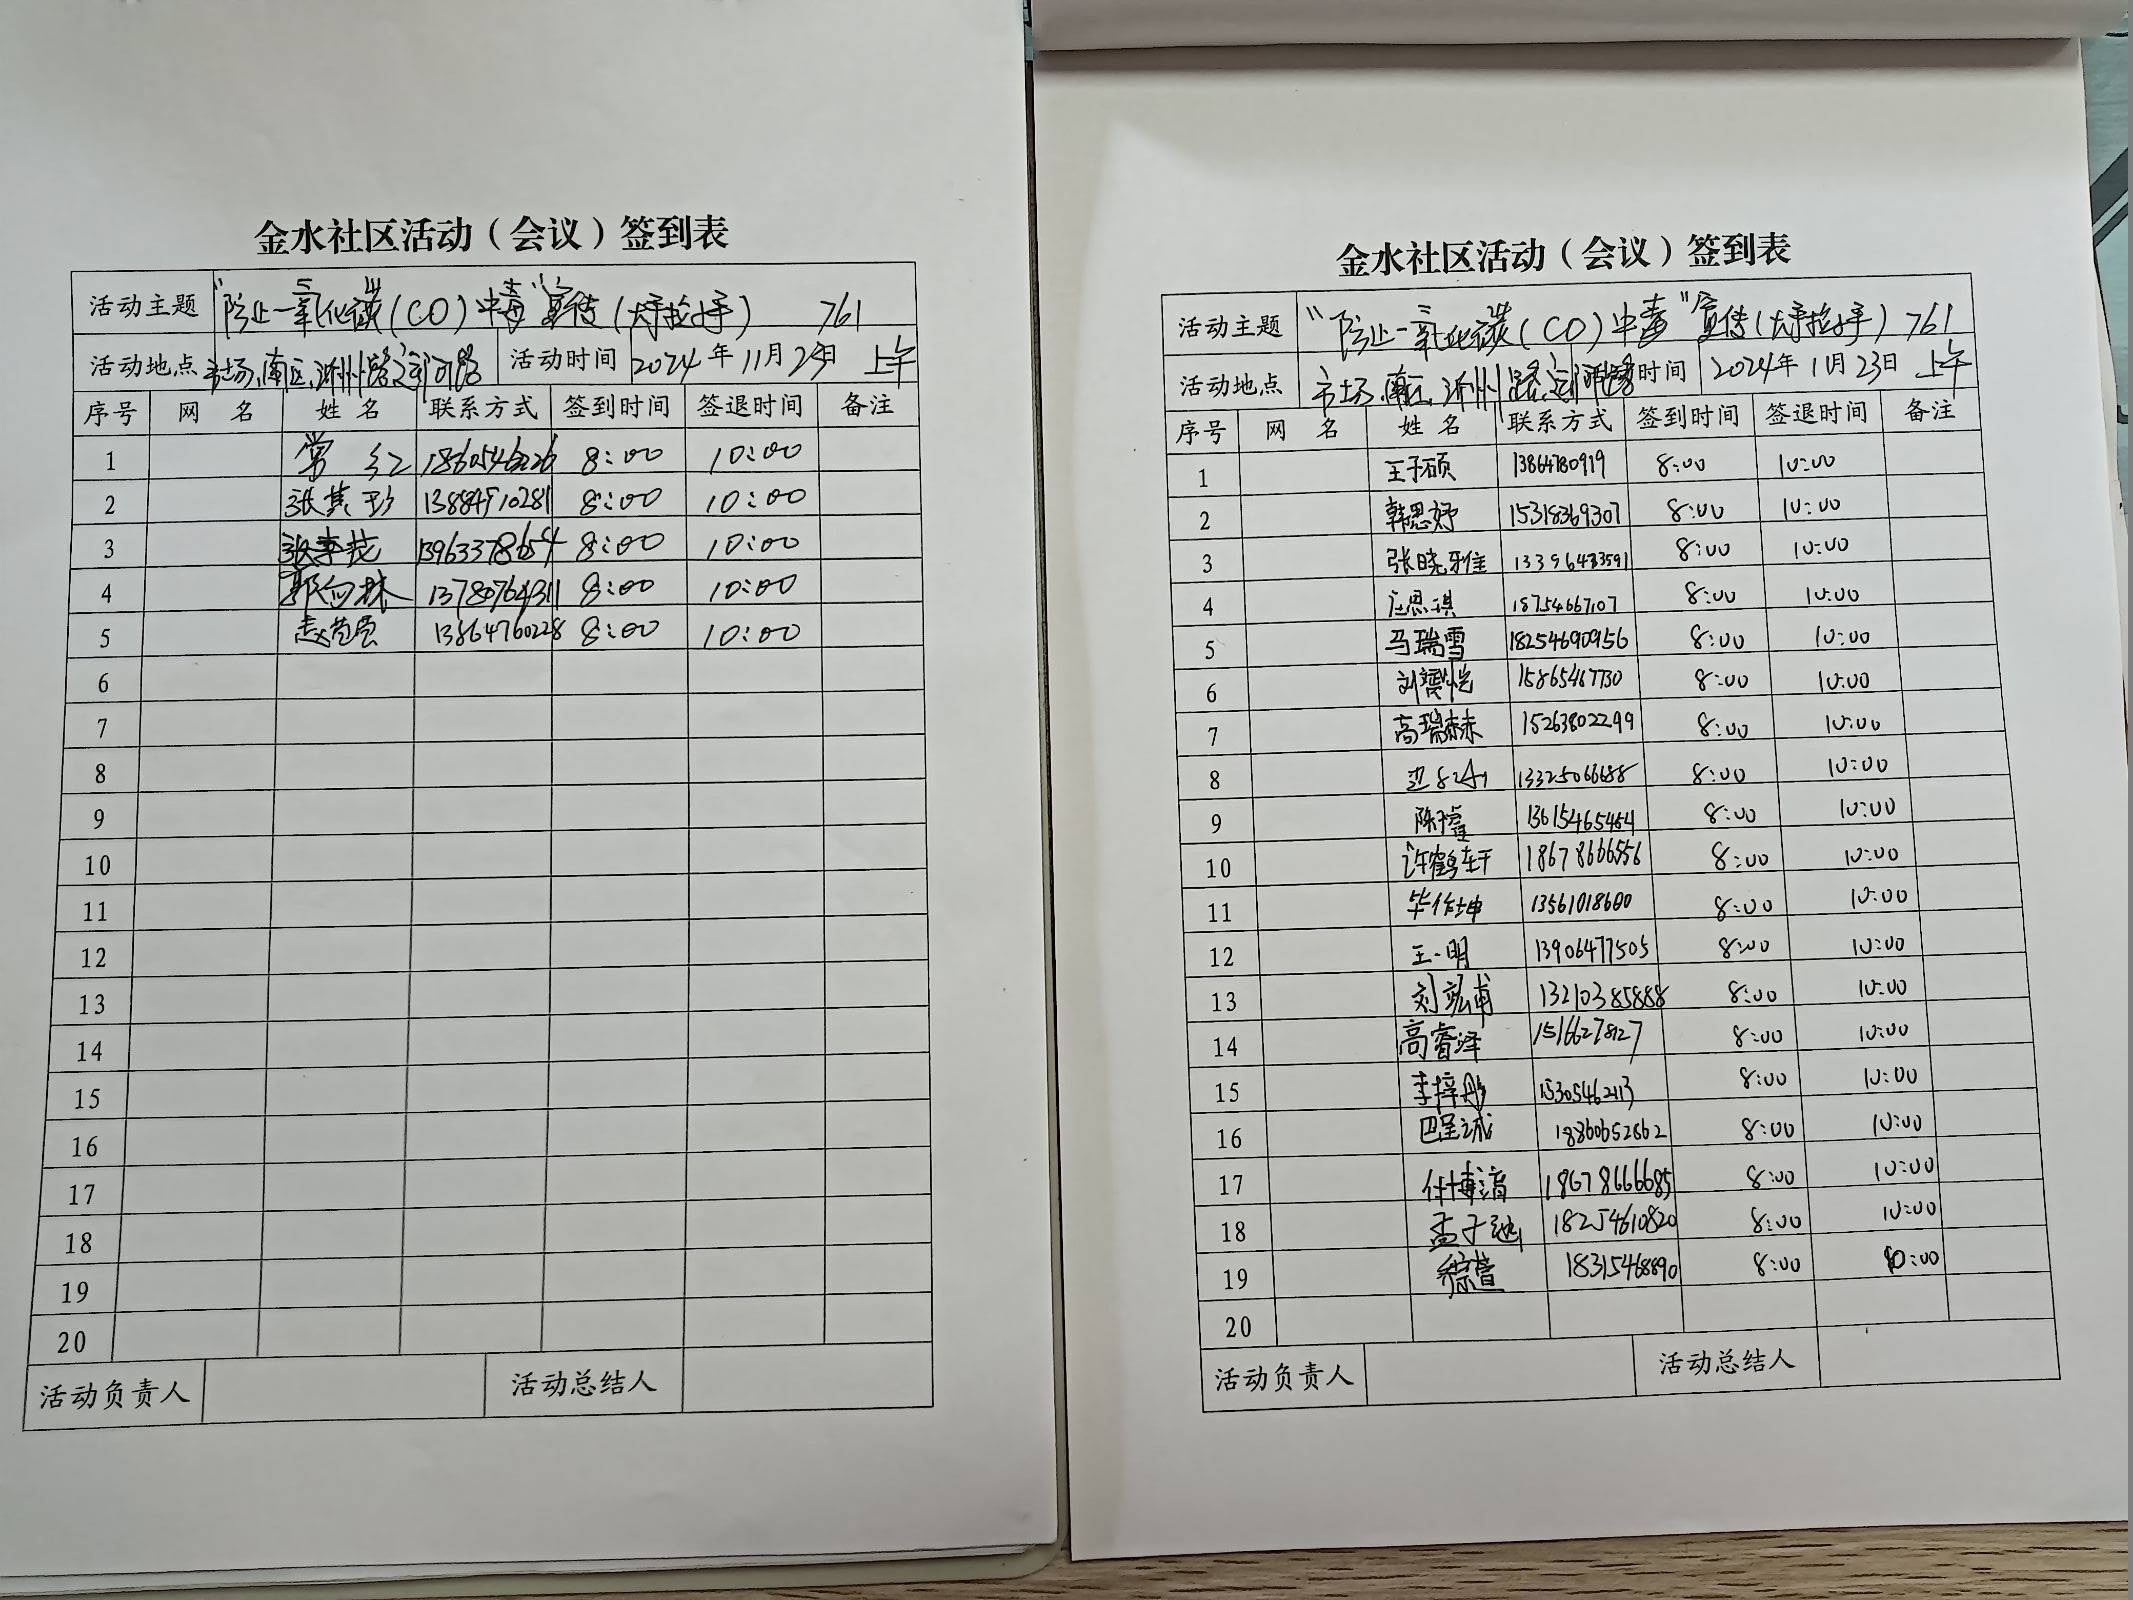 金水社区活动（会议）签到表
活动主题 "防止一氧化碳(CO)中毒"宣传(大手拉小手) 761
活动地点 市场、南区、沂州路、运河路 活动时间 2024年11月23日 上午
序号 网 名 姓 名 联系方式 签到时间 签退时间 备注
1 常 红 8:00 10:00
2 张其珍 13884910281 8:00 10:00
3 13963378654 8:00 10:00
4 13780764311 8:00 10:00
5 13864760228 8:00 10:00
6
7
8
9
10
11
12
13
14
15
16
17
18
19
20
活动负责人 活动总结人
金水社区活动（会议）签到表
活动主题 "防止一氧化碳(CO)中毒"宣传(大手拉小手) 761
活动地点 市场、南区、沂州路、运河路 时间 2024年11月23日 上午
序号 网 名 姓 名 联系方式 签到时间 签退时间 备注
1 王子硕 13864780919 8:00 10:00
2 韩思妤 15318369307 8:00 10:00
3 张晓雅 13396473591 8:00 10:00
4 18754667107 8:00 10:00
5 马瑞雪 18254690956 8:00 10:00
6 15865467730 8:00 10:00
7 高瑞赫 15263802299 8:00 10:00
8 13325066688 8:00 10:00
9 13615465464 8:00 10:00
10 许鹤轩 18678666556 8:00 10:00
11 毕作坤 13561018600 8:00 10:00
12 王一明 13906477505 8:00 10:00
13 刘宏甫 13210385888 8:00 10:00
14 高睿泽 15166278127 8:00 10:00
15 李梓彤 15305462113 8:00 10:00
16 巴呈诚 18360652862 8:00 10:00
17 付博清 18678666685 8:00 10:00
18 孟子 18254610820 8:00 10:00
19 18315468890 8:00 10:00
20
活动负责人 活动总结人